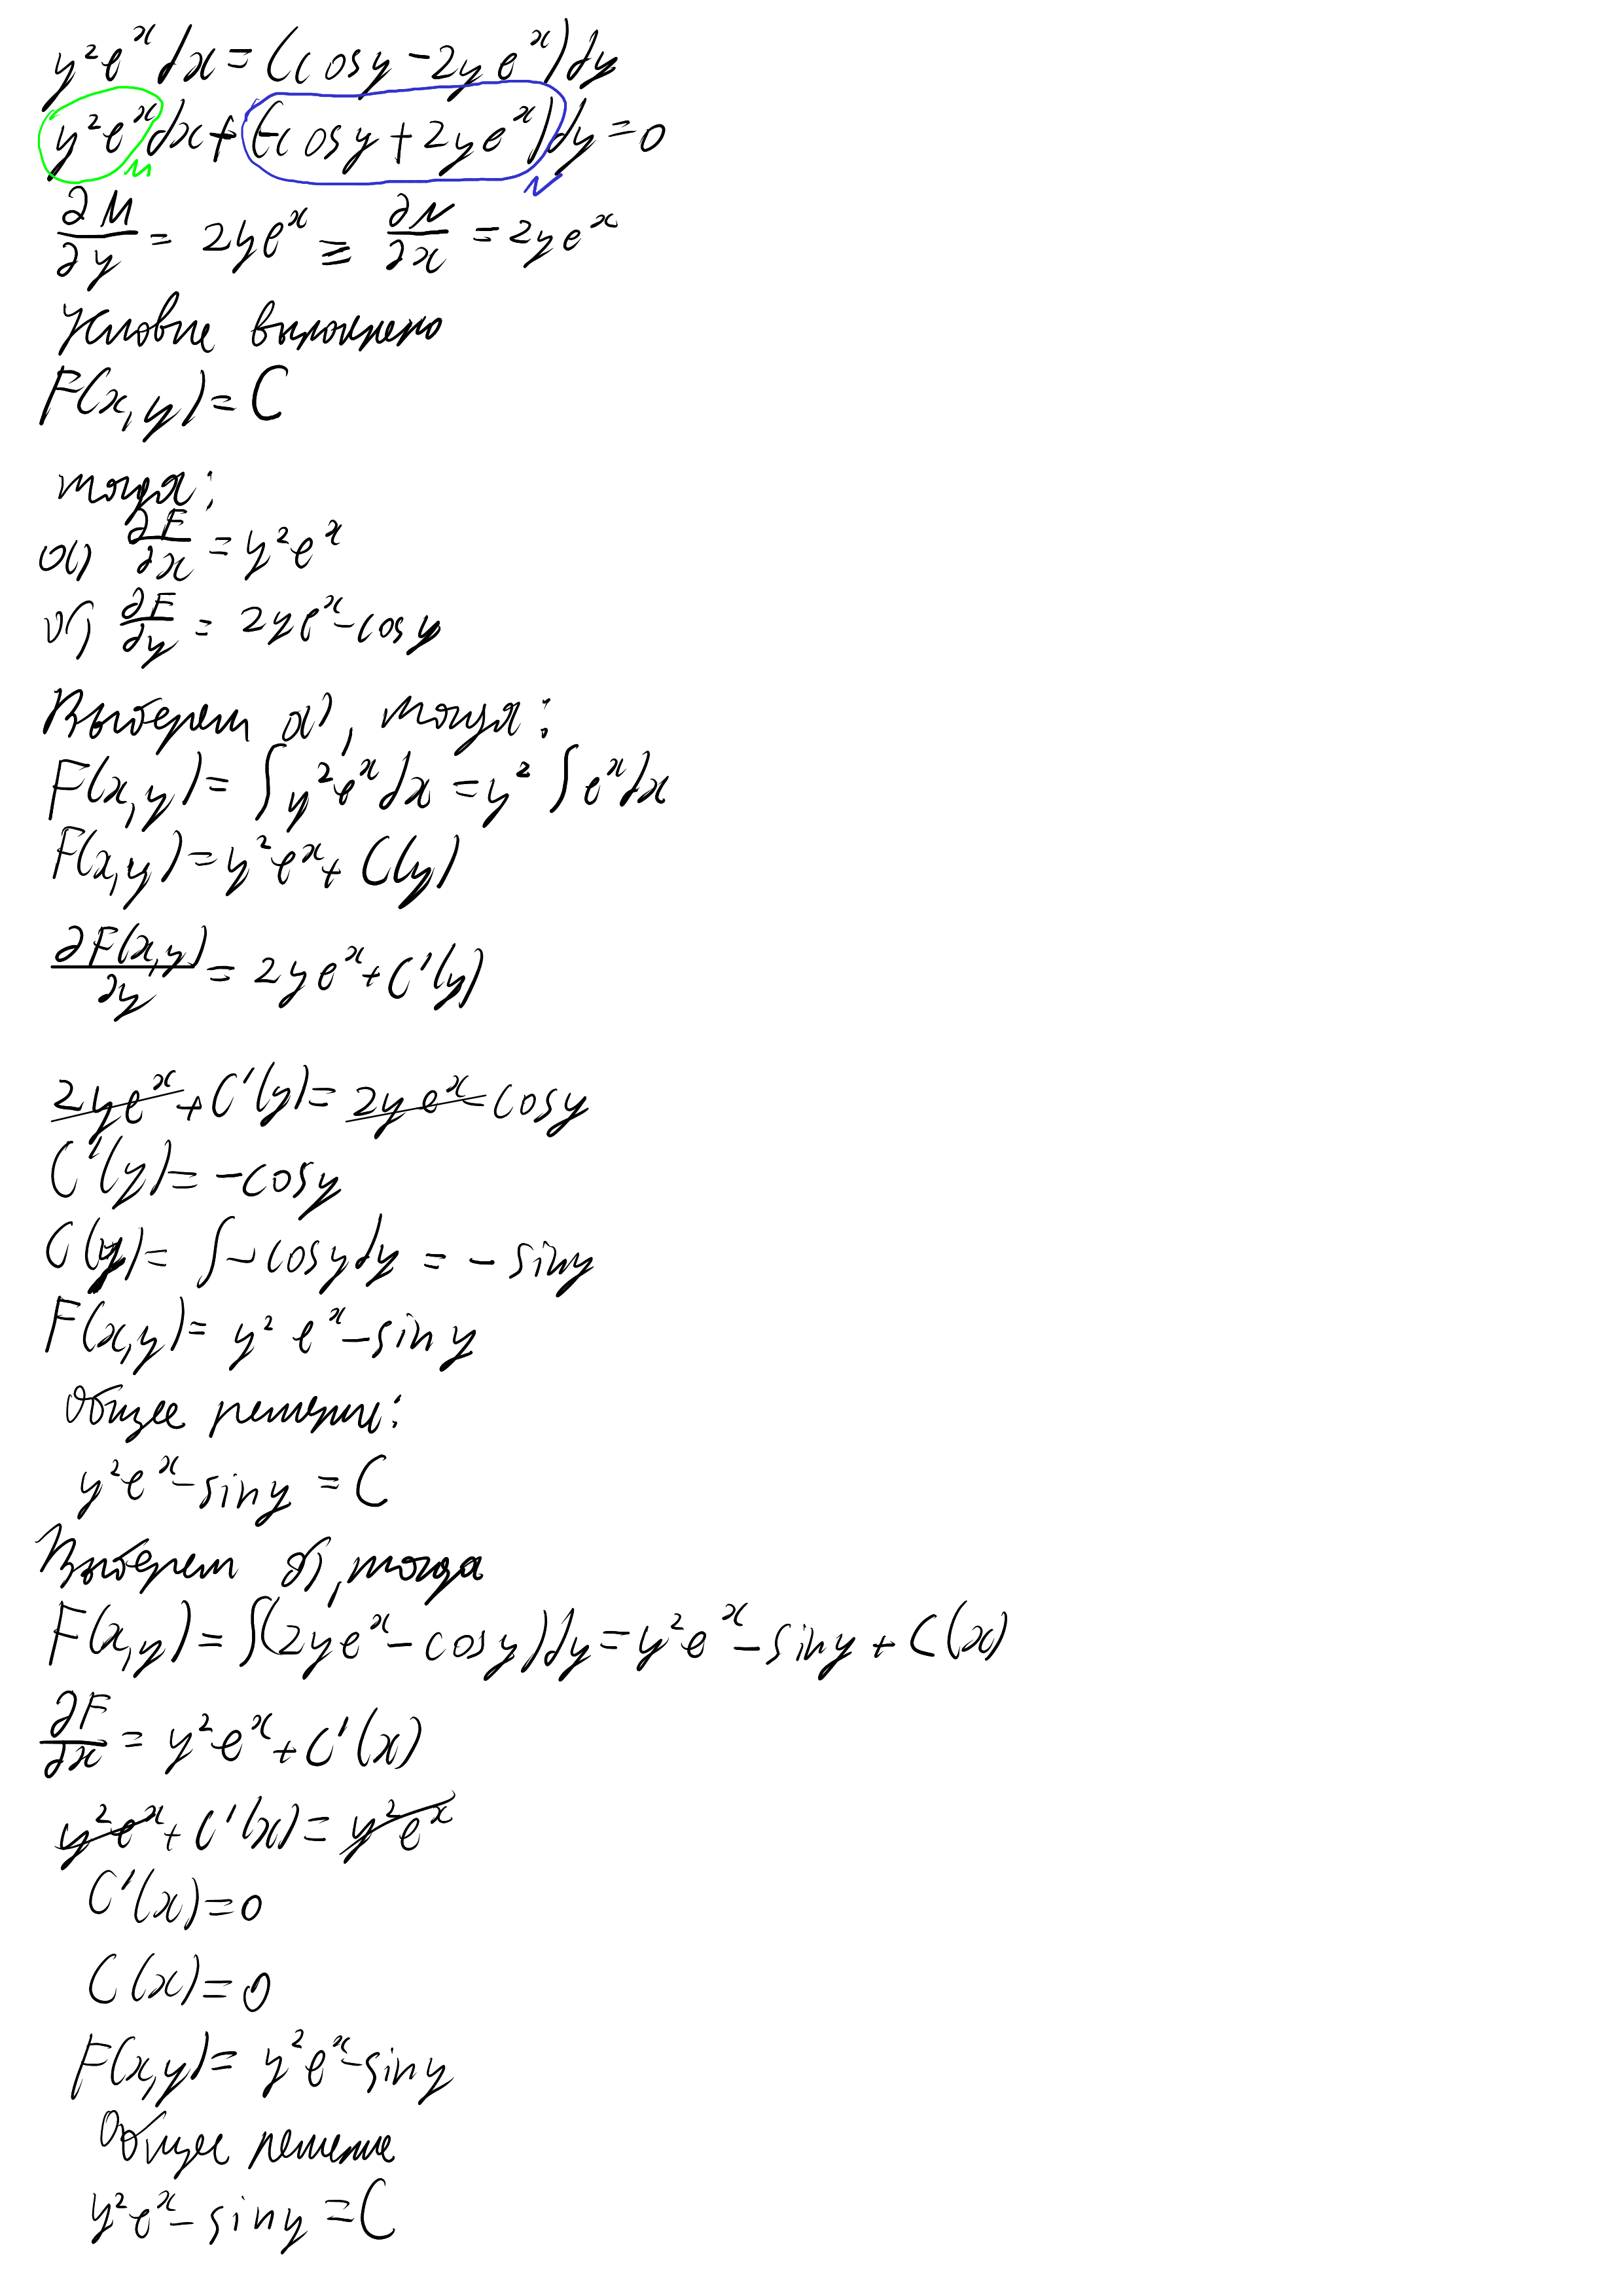 y²eˣdx = (cosy - 2yeˣ)dy
y²eˣdx + (-cosy + 2yeˣ)dy = 0
M N
∂M/∂y = 2yeˣ ≡ ∂N/∂x = 2yeˣ
Условие выполнено
F(x,y) = C
тогда:
а) ∂F/∂x = y²eˣ
б) ∂F/∂y = 2yeˣ - cosy
Выберем а), тогда:
F(x,y) = ∫y²eˣdx = y²∫eˣdx
F(x,y) = y²eˣ + C(y)
∂F(x,y)/∂y = 2yeˣ + C'(y)
2yeˣ + C'(y) = 2yeˣ - cosy
C'(y) = -cosy
C(y) = ∫-cosydy = -siny
F(x,y) = y²eˣ - siny
Общее решение:
y²eˣ - siny = C
Выберем б), тогда
F(x,y) = ∫(2yeˣ - cosy)dy = y²eˣ - siny + C(x)
∂F/∂x = y²eˣ + C'(x)
y²eˣ + C'(x) = y²eˣ
C'(x) = 0
C(x) = 0
F(x,y) = y²eˣ - siny
Общее решение
y²eˣ - siny = C